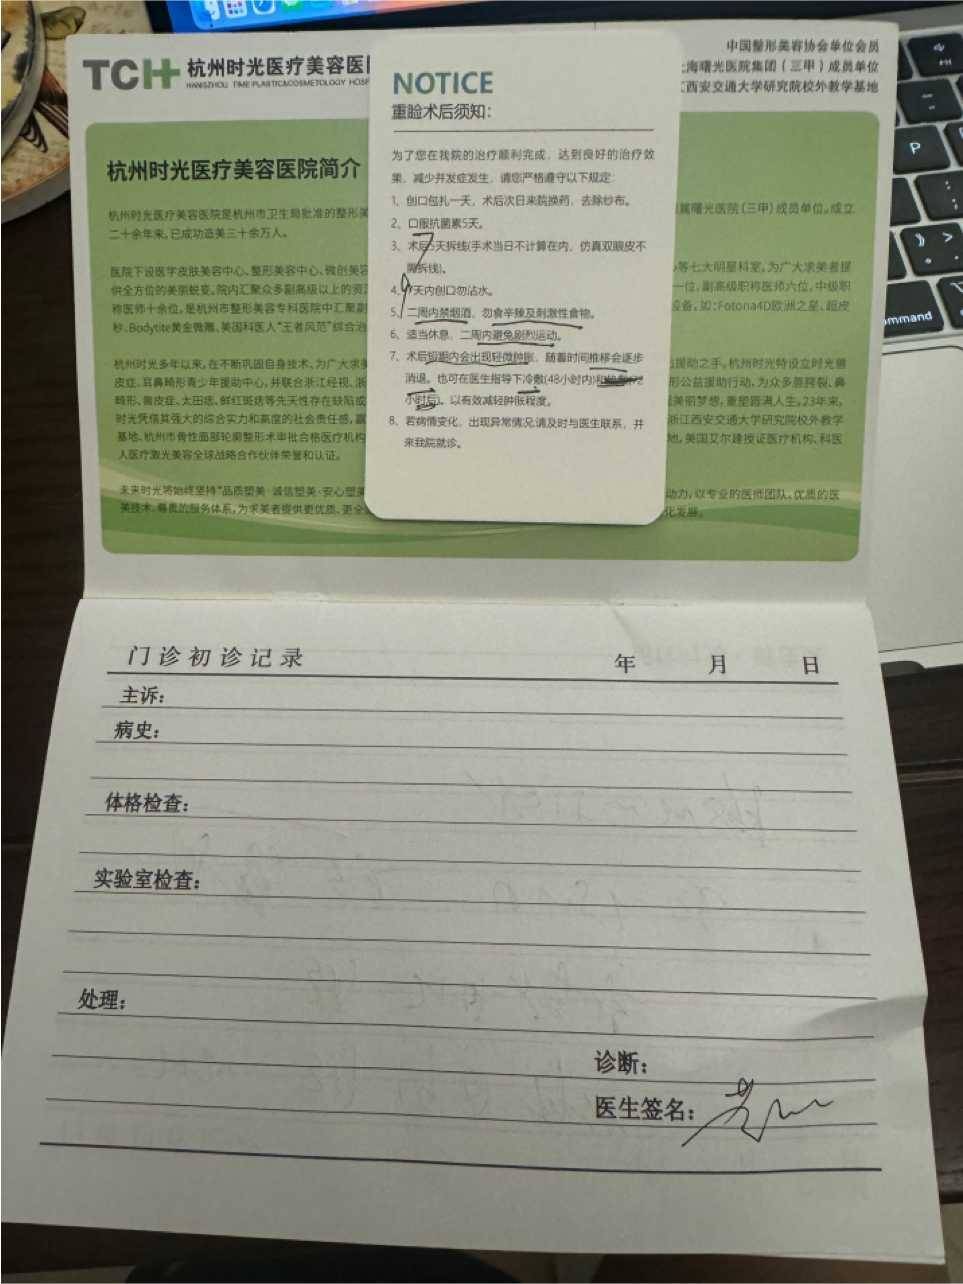 TCH 杭州时光医疗美容医
HANGZHOU TIME PLASTIC&COSMETOLOGY HOSP
中国整形美容协会单位会员
上海曙光医院集团（三甲）成员单位
江西安交通大学研究院校外教学基地
杭州时光医疗美容医院简介
杭州时光医疗美容医院是杭州市卫生局批准的整形美
属曙光医院（三甲）成员单位。成立
二十余年来，已成功造美三十余万人。
医院下设医学皮肤美容中心、整形美容中心、微创美容
等七大明星科室。为广大求美者提
供全方位的美丽蜕变。院内汇聚众多副高级以上的资
一位，副高级职称医师六位，中级职
称医师十余位，是杭州市整形美容专科医院中汇聚副
设备。如：Fotona4D欧洲之星、超皮
秒、Bodytite黄金微雕、美国科医人“王者风范”综合治
杭州时光多年以来，在不断巩固自身技术，为广大求美
援助之手。杭州时光特设立时光兽
皮症、耳鼻畸形青少年援助中心，并联合浙江经视、浙
形公益援助行动，为众多唇腭裂、鼻
畸形、兽皮症、太田痣、鲜红斑痣等先天性存在缺陷或
美丽梦想，重塑圆满人生。23年来，
时光凭借其强大的综合实力和高度的社会责任感，赢
浙江西安交通大学研究院校外教学
基地、杭州市骨性面部轮廓整形术审批合格医疗机构
地，美国艾尔建授证医疗机构、科医
人医疗激光美容全球战略合作伙伴荣誉和认证。
未来时光将始终坚持“品质塑美·诚信塑美·安心塑美
动力，以专业的医师团队、优质的医
美技术、尊贵的服务体系，为求美者提供更优质、更全
化发展。
NOTICE
重睑术后须知：
为了您在我院的治疗顺利完成，达到良好的治疗效
果，减少并发症发生，请您严格遵守以下规定：
1、创口包扎一天，术后次日来院换药，去除纱布。
2、口服抗菌素5天。
3、术后5天拆线(手术当日不计算在内，仿真双眼皮不
需拆线)。
7
4、7天内创口勿沾水。
9
5、二周内禁烟酒，勿食辛辣及刺激性食物。
6、适当休息，二周内避免剧烈运动。
7、术后短期内会出现轻微肿胀，随着时间推移会逐步
消退。也可在医生指导下冷敷(48小时内)和热敷(72
小时后)，以有效减轻肿胀程度。
8、若病情变化，出现异常情况请及时与医生联系，并
来我院就诊。
P
command
门诊初诊记录 年 月 日
主诉：
病史：
体格检查：
实验室检查：
处理：
诊断：
医生签名：